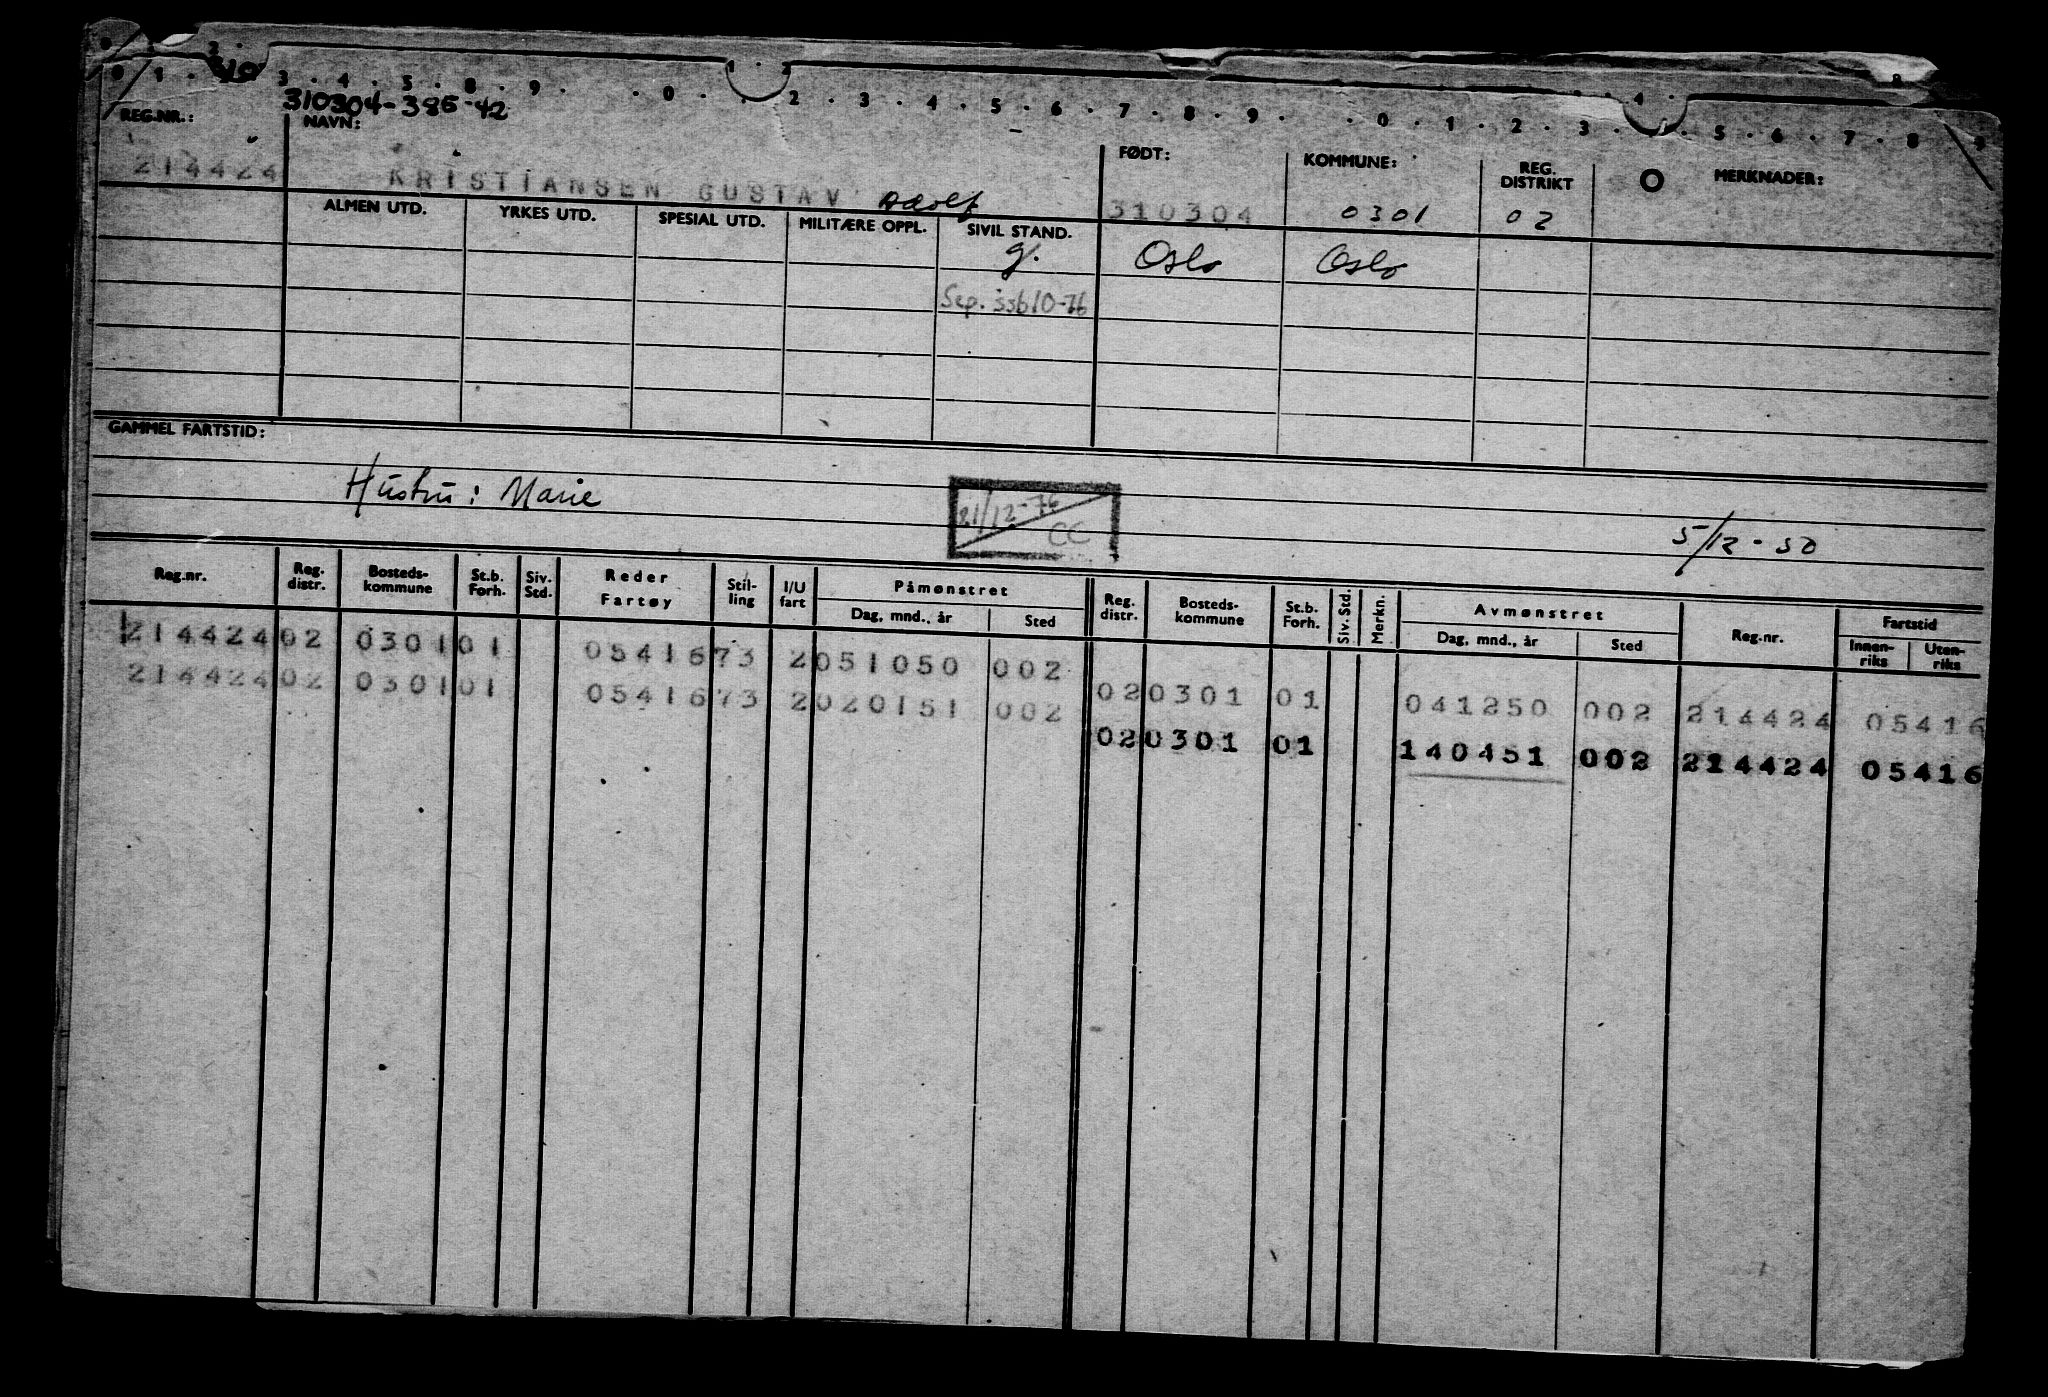 0 1 2
0 1 310 3 4 5 8 9 0 1 2 2 3 4 5 6 7 8 9 0 1 2 3 4 5 6 7 8 9
310304-386-42
REG.NR.: NAVN: FØDT: KOMMUNE: REG. DISTRIKT MERKNADER:
214424 KRISTIANSEN GUSTAV Adolf 310304 0301 02
ALMEN UTD. YRKES UTD. SPESIAL UTD. MILITÆRE OPPL. SIVIL STAND.
g. Oslo Oslo
Sep. ssb 10-76
GAMMEL FARTSTID:
Hustru: Marie 21/12-76 CC 5/12-50
Reg.nr. Reg. distr. Bosteds-kommune St.b. Forh. Siv. Std. Reder Fartøy Stil-ling I/U fart Påmønstret Dag, mnd., år Sted Reg. distr. Bosteds-kommune St.b. Forh. Siv. Std. Merkn. Avmønstret Dag, mnd., år Sted Reg.nr. Fartstid Innen-riks Uten-riks
214424 02 0301 01 05416 73 2 051050 002
214424 02 0301 01 05416 73 2 020151 002
02 0301 01 041250 002 214424 05416
02 0301 01 140451 002 214424 05416